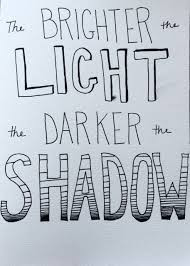 The BRIGHTER the
LIGHT
the DARKER the
SHADOW